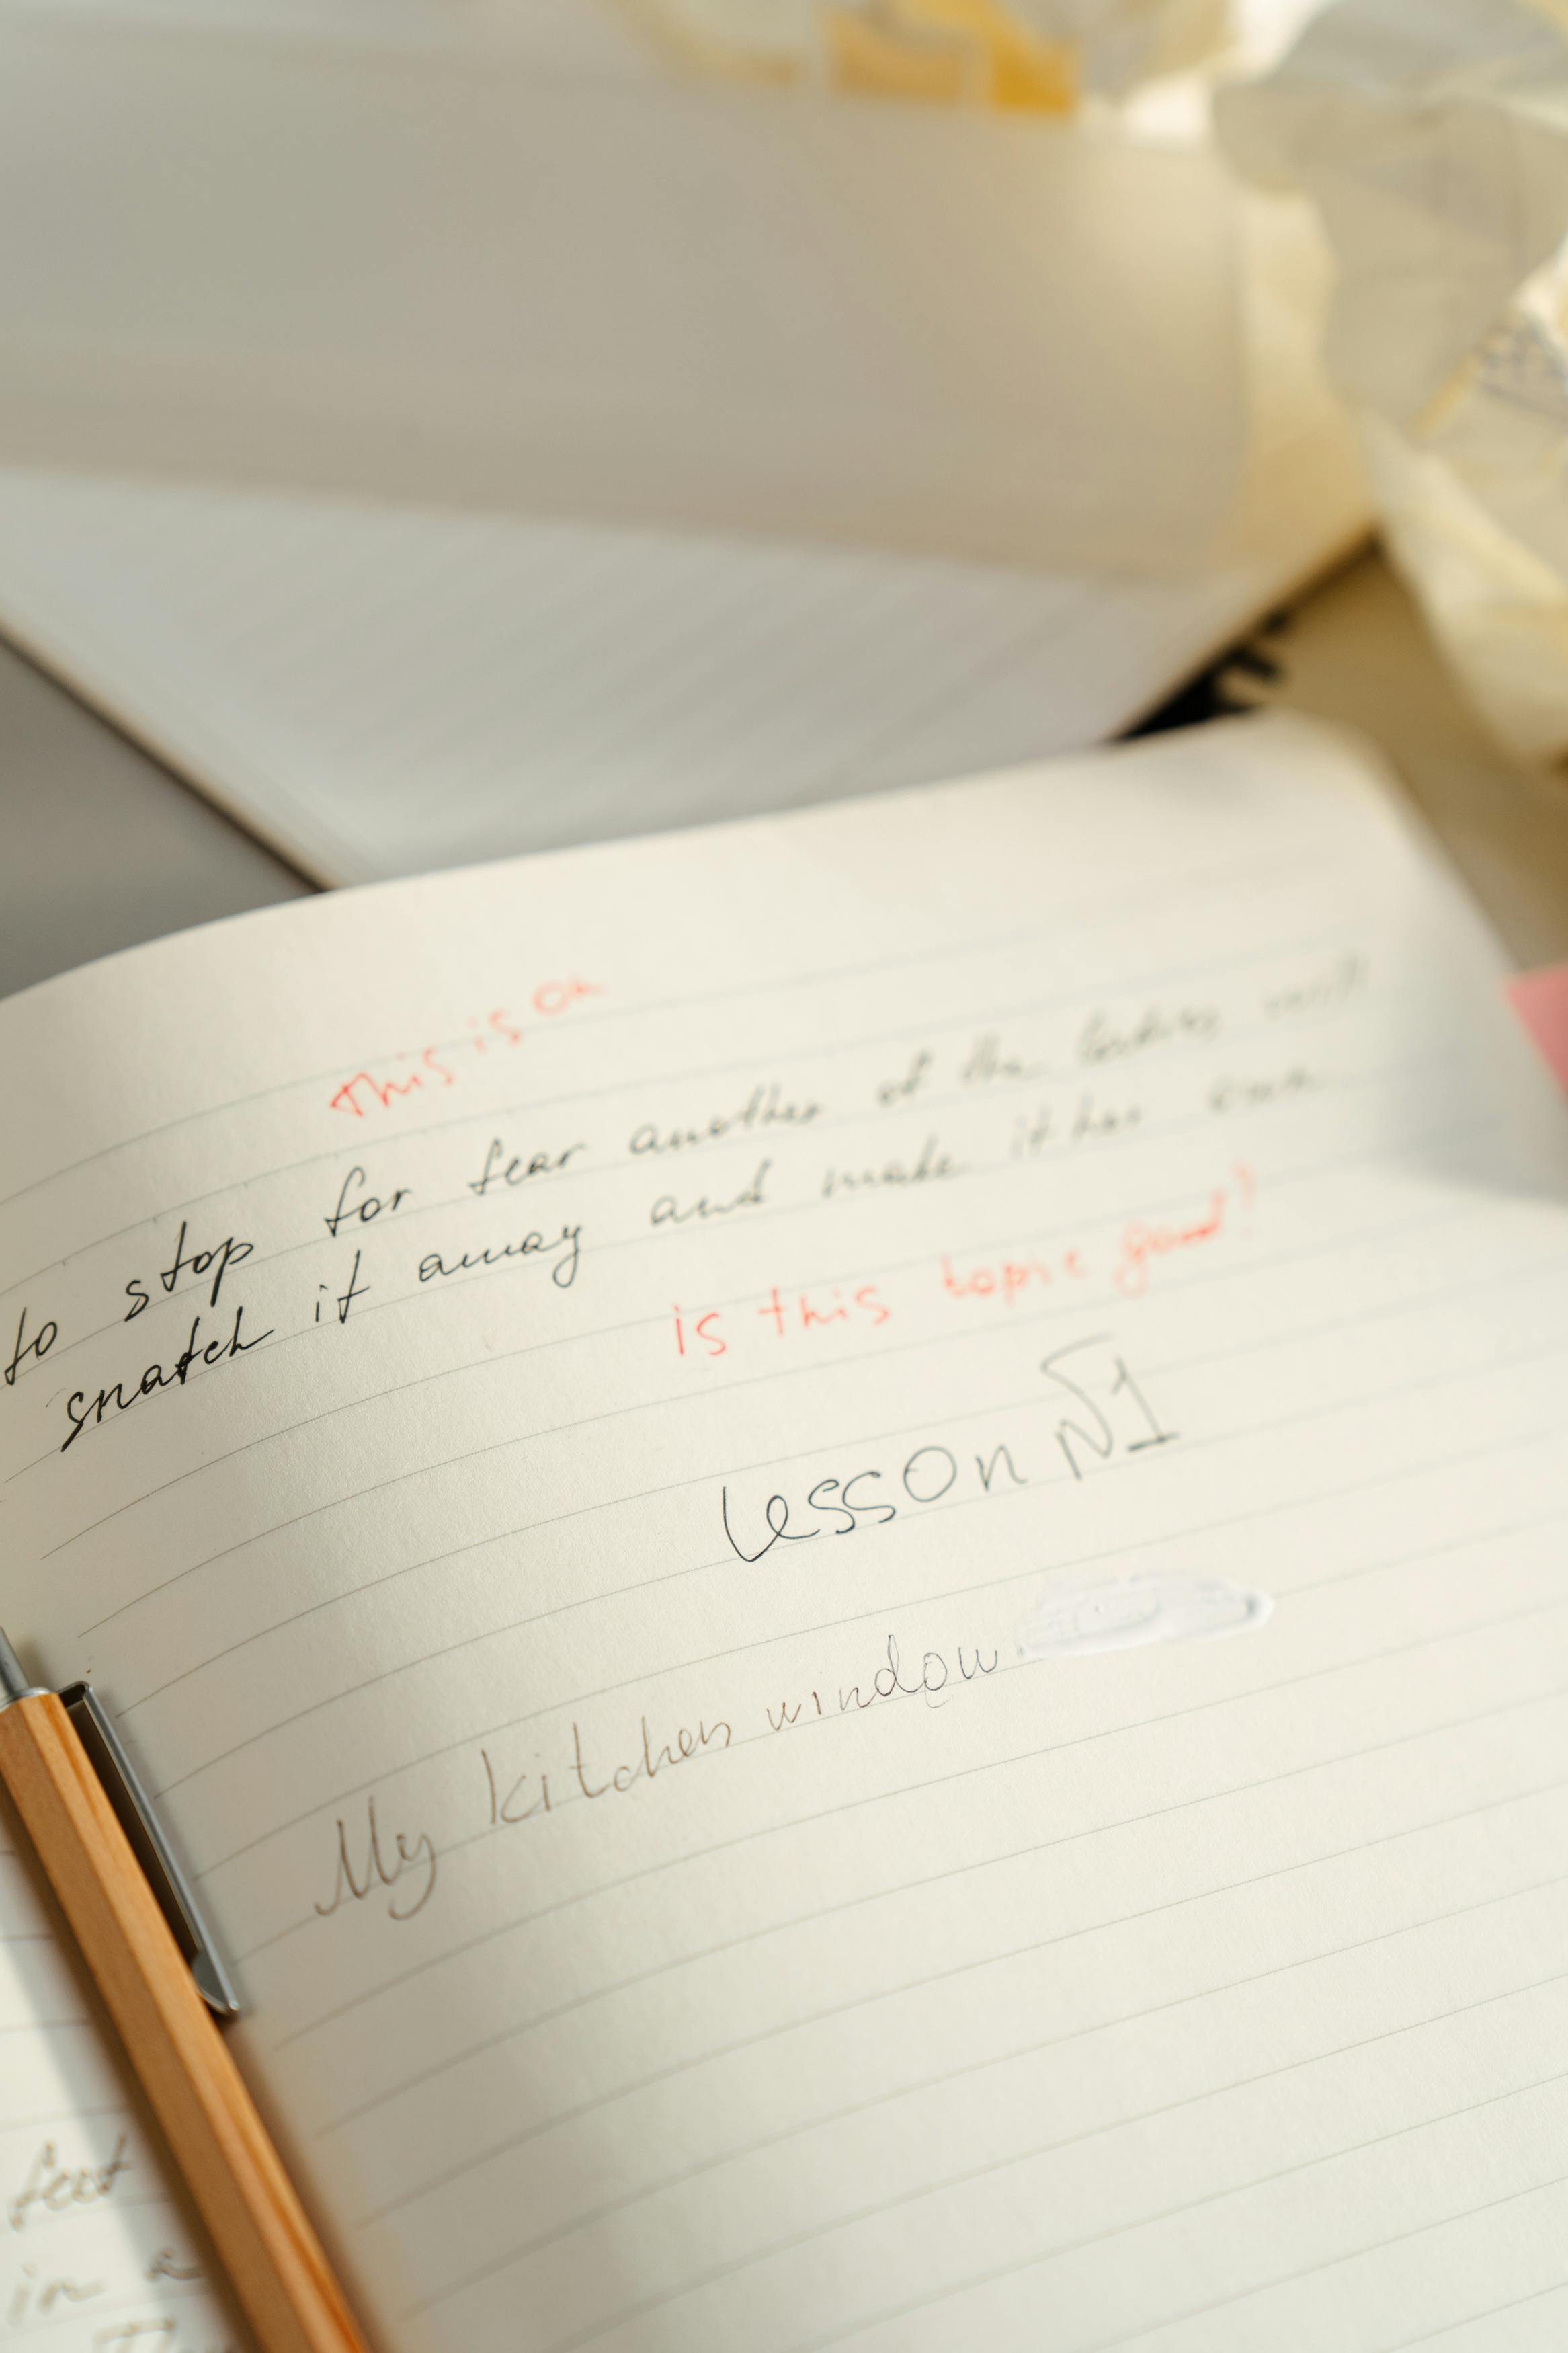 This is ok
to stop for fear another of the ladies will
snatch it away and make it her own
is this topic good?
Lesson №1
My kitchen window
feet
in a